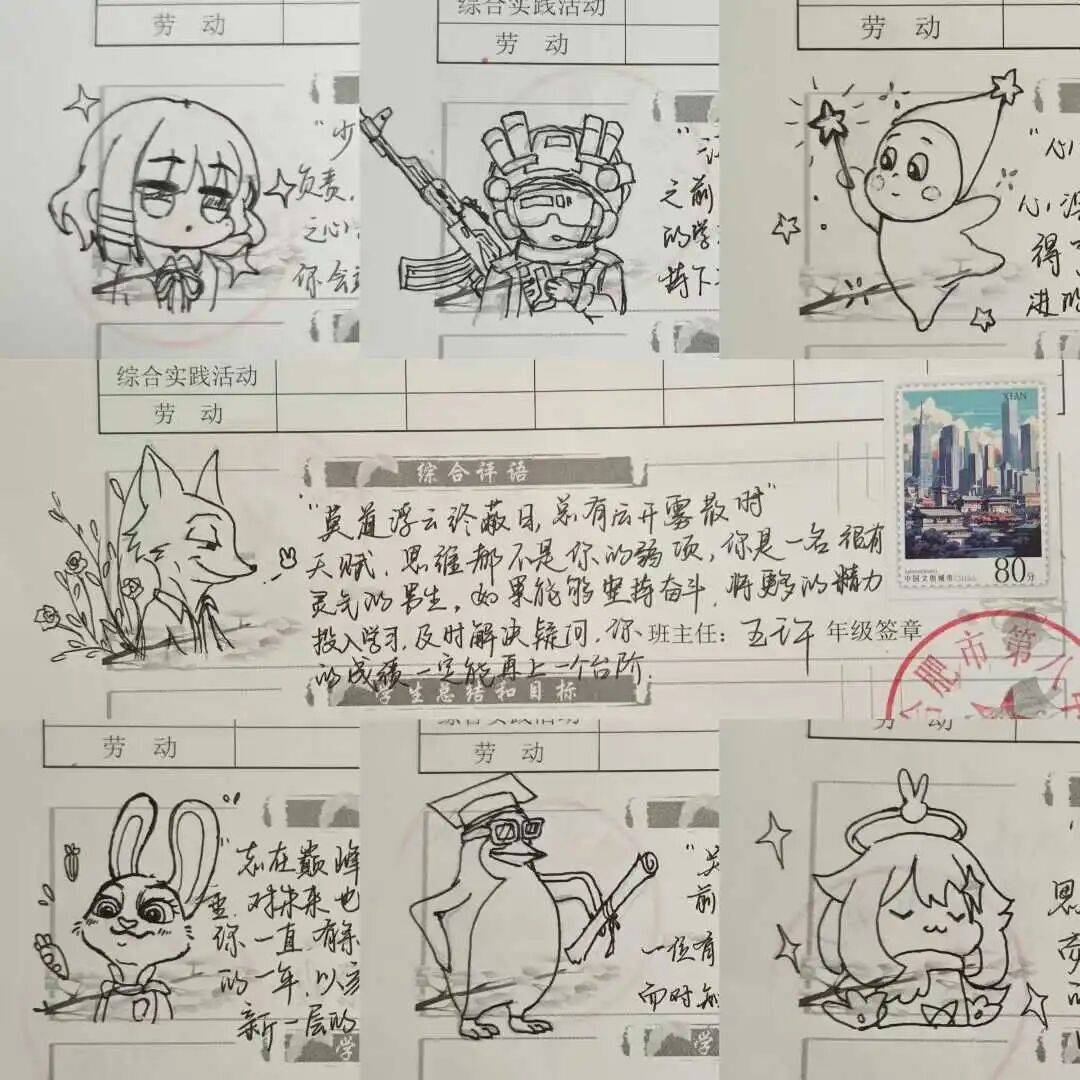 劳 动
"少
负责,
之心
你会
综合实践活动
劳 动
之前
的学
持下
劳 动
"心
心
得
进的
综合实践活动
劳 动
综合评语
"莫道浮云终蔽日,总有云开雾散时"
天赋、思维都不是你的弱项,你是一名很有
灵气的男生,如果能够坚持奋斗,将更多的精力
投入学习,及时解决疑问,你
的成绩一定能再上一个台阶.
班主任: 王许 年级签章
学生总结和目标
XI'AN
中国文旅城市
80分
合肥市第八中
劳 动
"志在巅峰
对未来也
你一直有
的一年,以
新一层的
学
综合实践活动
劳 动
前
一位有
而时
学
劳 动
思